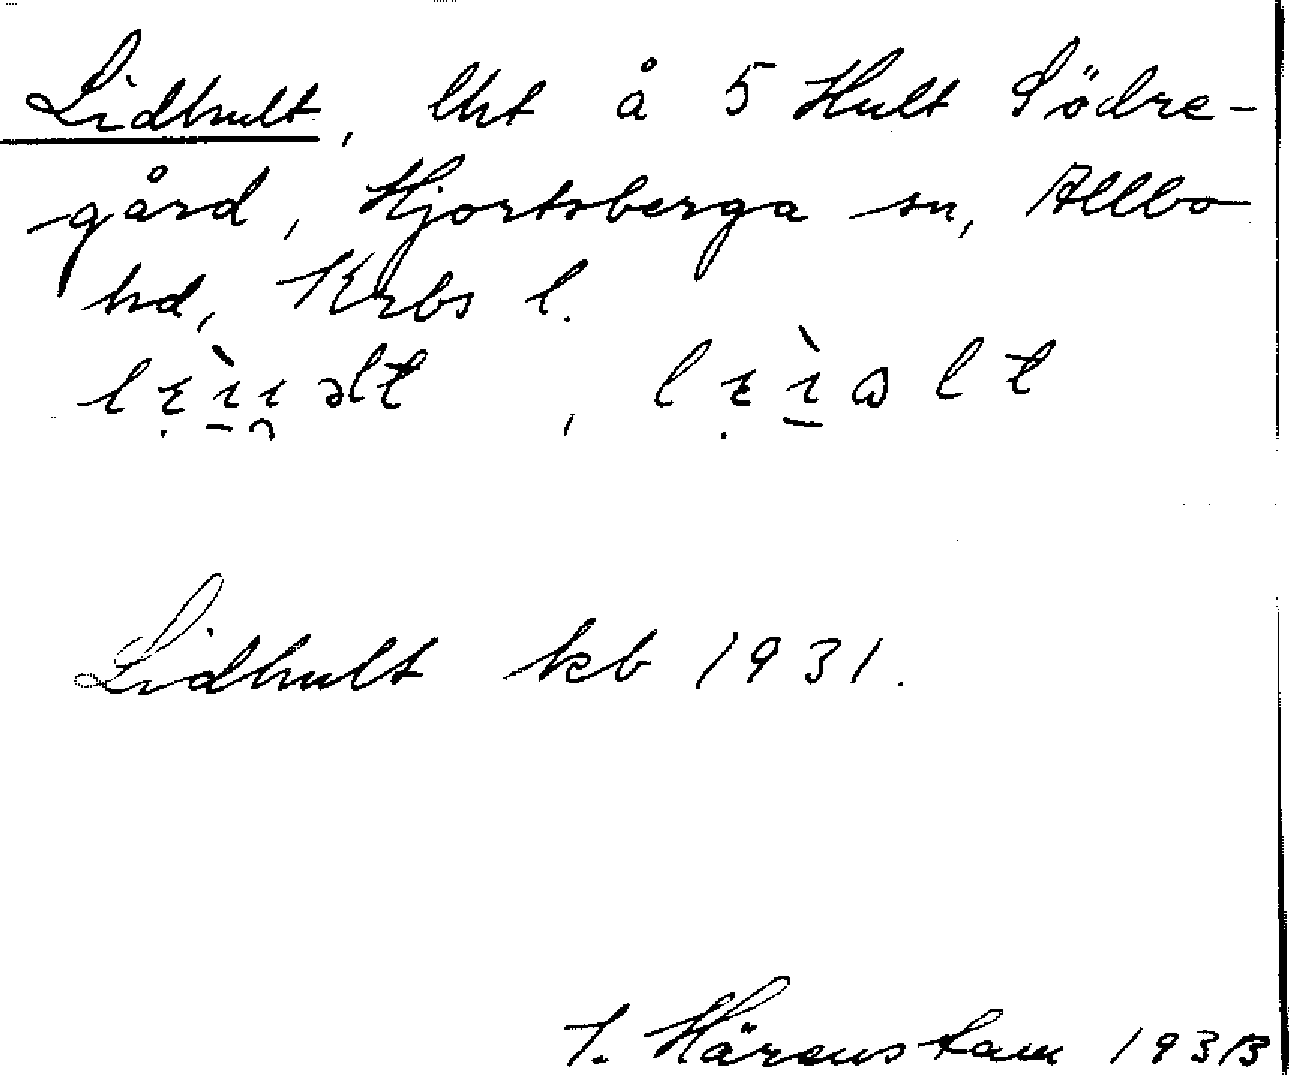 Lidhult, lht å 5 Hult Södre-
gård, Hjortsberga sn, Allbo
hd, Krbs l.
Lidhult kb 1931.
J. Härenstam 1933